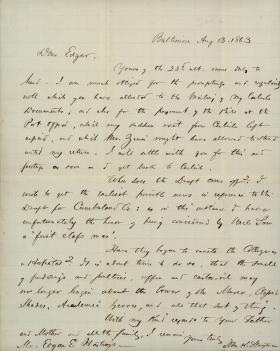 Baltimore Aug 13. 1863
Dear Edgar,
Yours of the 23d ult. came duly to
hand. I am much obliged for the promptness and regularity
with which you have attended to the Mailing of My Carlisle
Documents, and also for the payment of the Bill at the
Post Office, which my sudden exit from Carlisle left
unpaid, and which Mrs. might have allowed to stand
until my return. I will settle with you for this and
postage as soon as I get back to Carlisle.
When does the Draft come off? I
wish to get the earliest possible news in reference to the
Draft for Cumberland Co: as in this instance I have
unfortunately the honor of being considered by Uncle Sam
a "first class man".
Have they begun to vacate the College as
a Hospital? It is about time to do so, that the smell
of and poultices, and
no longer linger about the of the Muses,
Shades, Academic Groves, and all that sort of thing.
With my kind regards to Your Father
and Mother and all the family, I remain,
Yours truly,
Mr. Edgar E. Hastings